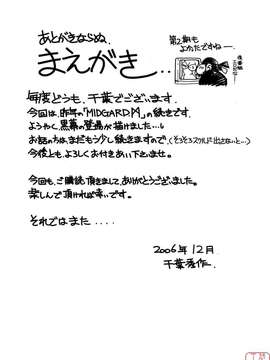 あとがきならぬ、
まえがき..
第2期も
よかったですねー
毎度どうも、千葉でございます。
今回は、昨年の「MIDGARD」の続きです。
ようやく、黒幕の登場が描けました...
お話のほうは、まだもう少し続きますので、
今後とも、よろしくお付きあい下さいませ。
今回も、ご購読頂きまして、ありがとうございました。
楽しんで頂ければ幸いです。
それではまた....
2006年12月
千葉秀作.